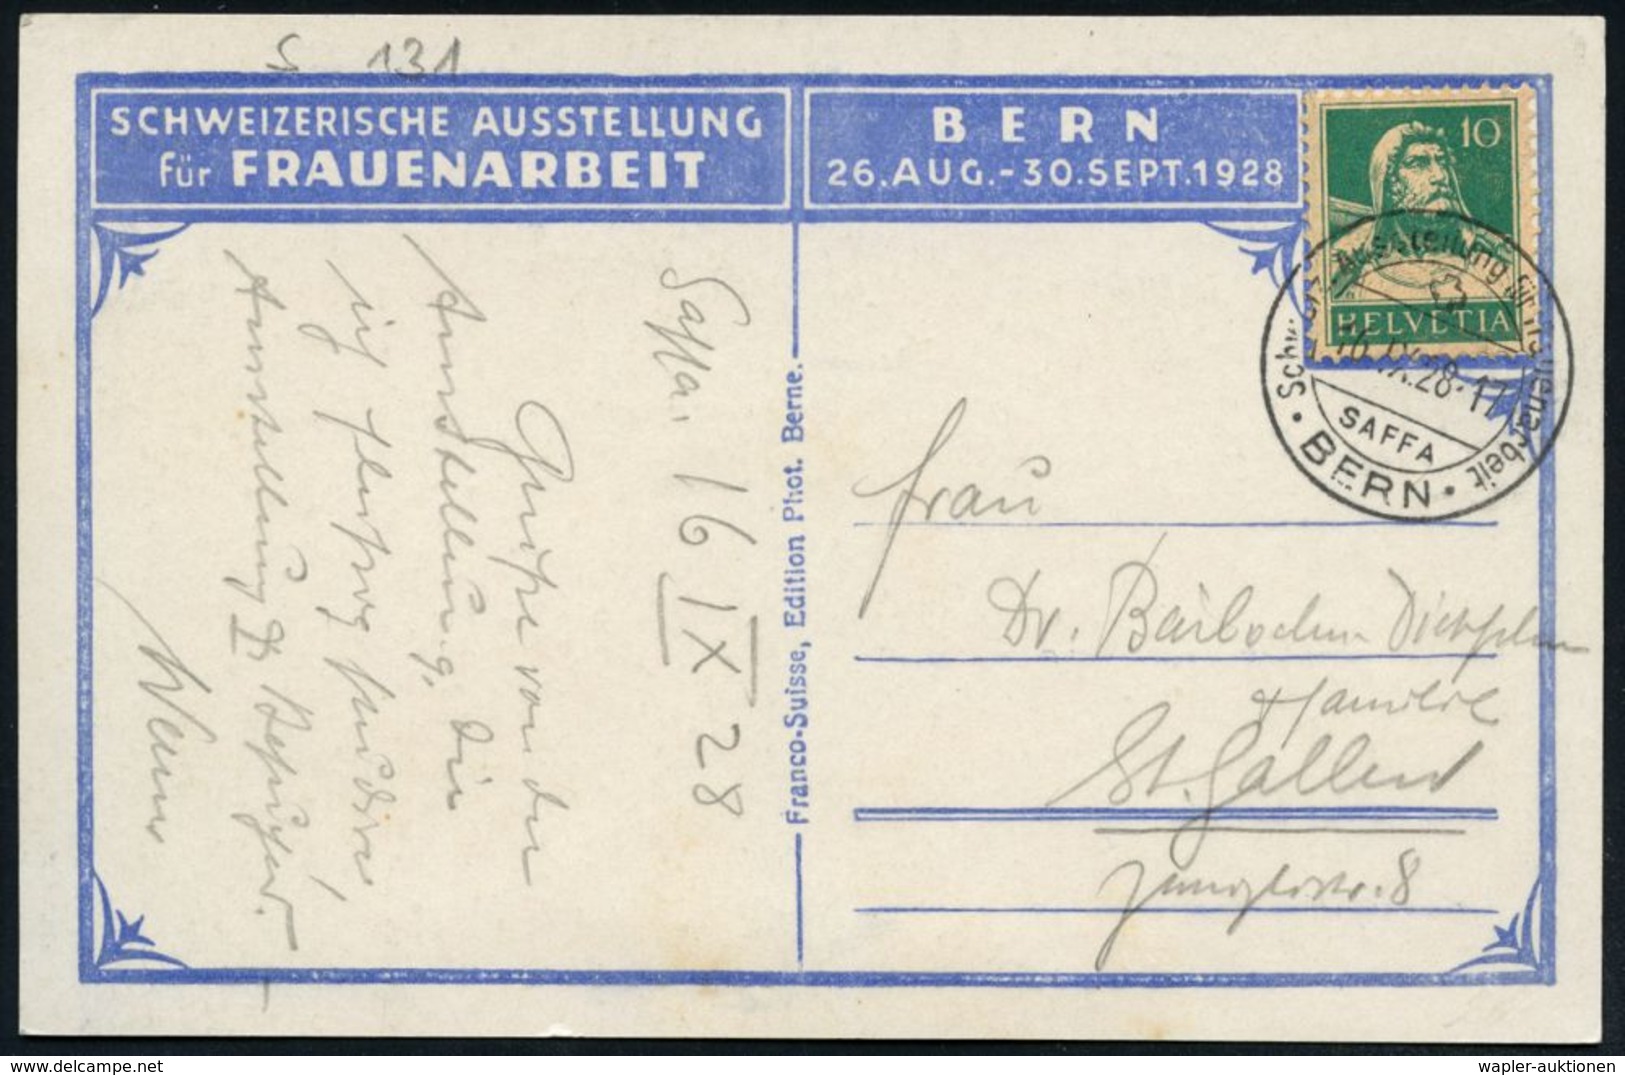 S 131
SCHWEIZERISCHE AUSSTELLUNG
für FRAUENARBEIT
BERN
26.AUG.-30.SEPT.1928
10
HELVETIA
Schw. Ausstellung für Frauenarbeit
16.IX.28-17
SAFFA
BERN
Saffa. 16 IX 28
Grüsse von der
Ausstellung,
die
ich
Ausstellung
Franco-Suisse, Edition Phot. Berne.
Frau
Dr. Bärlocher
+ Familie
St. Gallen
8
www.delcampe.net
wapler-auktionen